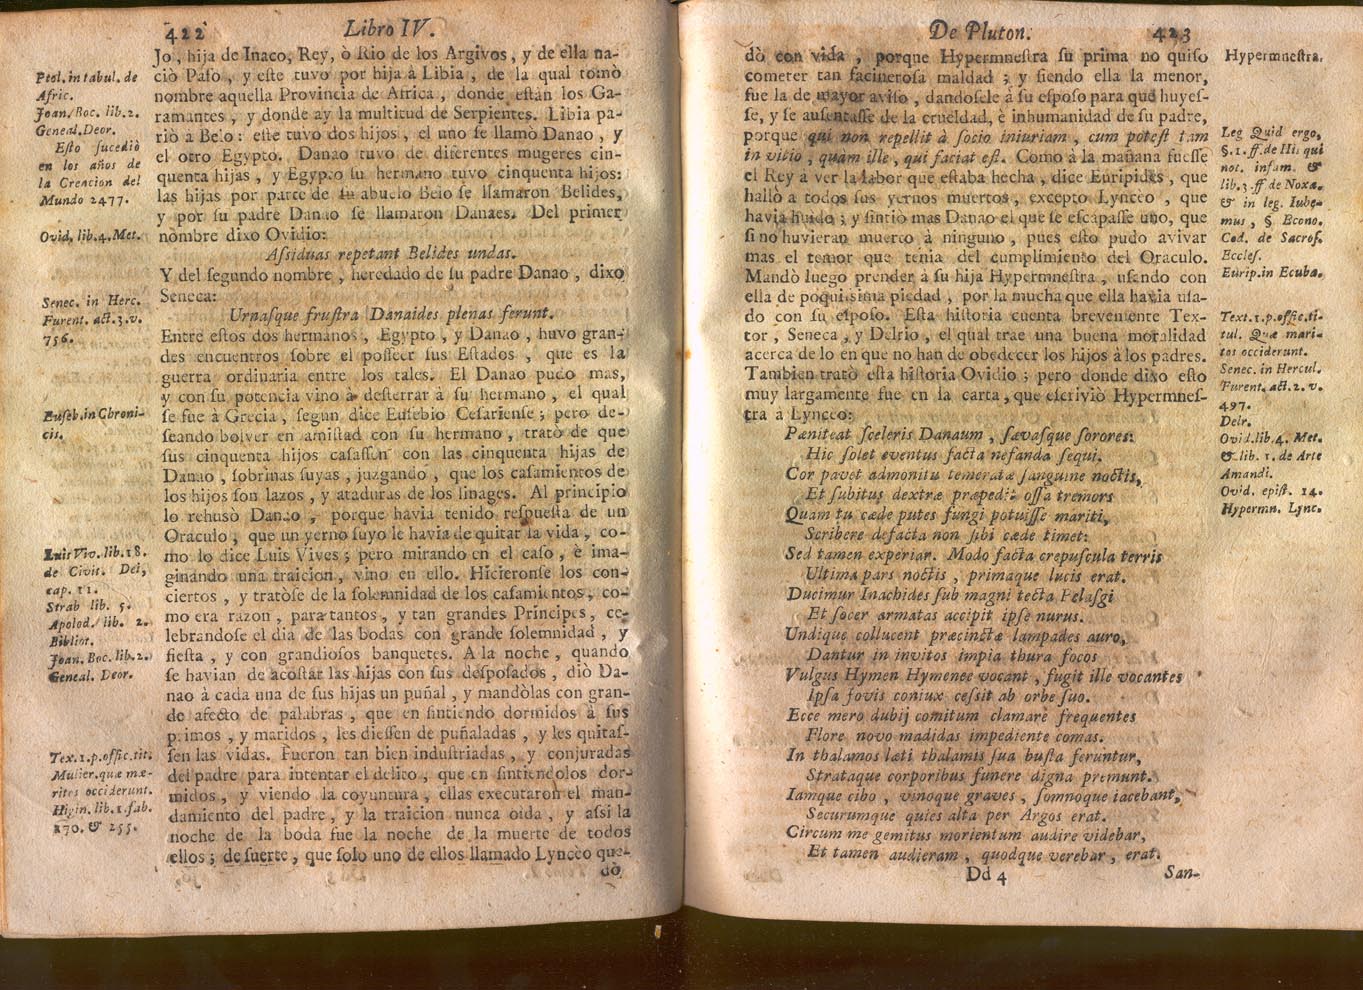 422
Libro IV.
Jo, hija de Inaco, Rey, ò Rio de los Argivos, y de ella na-
ciò Pafo, y eſte tuvo por hija à Libia, de la qual tomò
nombre aquella Provincia de Africa, donde eſtàn los Ga-
ramantes, y donde ay la multitud de Serpientes. Libia pa-
riò a Belo: eſte tuvo dos hijos, el uno ſe llamò Danao, y
el otro Egypto. Danao tuvo de diferentes mugeres cin-
quenta hijas, y Egypto ſu hermano tuvo cinquenta hijos:
las hijas por parte de ſu abuelo Belo ſe llamaron Belides,
y por ſu padre Danao ſe llamaron Danaes. Del primer
nombre dixo Ovidio:
Aſsiduas repetant Belides undas.
Y del ſegundo nombre, heredado de ſu padre Danao, dixo
Seneca:
Urnaſque fruſtra Danaides plenas ferunt.
Entre eſtos dos hermanos, Egypto, y Danao, huvo gran-
des encuentros ſobre el poſſeer ſus Eſtados, que es la
guerra ordinaria entre los tales. El Danao pudo mas,
y con ſu potencia vino à deſterrar à ſu hermano, el qual
ſe fue à Grecia, ſegun dice Euſebio Ceſarienſe; pero de-
ſeando bolver en amiſtad con ſu hermano, tratò de que
ſus cinquenta hijos caſaſſen con las cinquenta hijas de
Danao, ſobrinas ſuyas, juzgando, que los caſamientos de
los hijos ſon lazos, y ataduras de los linages. Al principio
lo rehusò Danao, porque havia tenido reſpueſta de un
Oraculo, que un yerno ſuyo le havia de quitar la vida, co-
mo lo dice Luis Vives; pero mirando en el caſo, è ima-
ginando una traicion, vino en ello. Hicieronſe los con-
ciertos, y tratòſe de la ſolemnidad de los caſamientos, co-
mo era razon, para tantos, y tan grandes Principes, ce-
lebrandoſe el dia de las bodas con grande ſolemnidad, y
fieſta, y con grandioſos banquetes. A la noche, quando
ſe havian de acoſtar las hijas con ſus deſpoſados, diò Da-
nao à cada una de ſus hijas un puñal, y mandòlas con gran-
de afecto de palabras, que en ſintiendo dormidos à ſus
primos, y maridos, les dieſſen de puñaladas, y les quitaſ-
ſen las vidas. Fueron tan bien induſtriadas, y conjuradas
del padre para intentar el delito, que en ſintiendolos dor-
midos, y viendo la coyuntura, ellas executaron el man-
damiento del padre, y la traicion nunca oida, y aſsi la
noche de la boda fue la noche de la muerte de todos
ellos; de ſuerte, que ſolo uno de ellos llamado Lynceo que-
dò
Ptol. in tabul. de
Afric.
Joan. Boc. lib. 2.
Geneal. Deor.
Eſto ſucediò
en los años de
la Creacion del
Mundo 2477.
Ovid. lib. 4. Met.
Senec. in Herc.
Furent. act. 3. v.
756.
Euſeb. in Chroni-
cis.
Luis Viv. lib. 18.
de Civit. Dei,
cap. 11.
Strab lib. 5.
Apolod. lib. 2.
Bibliot.
Joan. Boc. lib. 2.
Geneal. Deor.
Tex. 1. p. offic. tit.
Mulier. quæ ma-
ritos occiderunt.
Higin. lib. 1. fab.
170. & 255.
De Pluton.
423
dò con vida, porque Hypermneſtra ſu prima no quiſo
cometer tan facineroſa maldad; y ſiendo ella la menor,
fue la de mayor aviſo, dandoſele à ſu eſpoſo para que huyeſ-
ſe, y ſe auſentaſſe de la crueldad, è inhumanidad de ſu padre,
porque qui non repellit à ſocio iniuriam, cum poteſt tam
in vitio, quàm ille, qui faciat eſt. Como à la mañana fueſſe
el Rey à ver la labor que eſtaba hecha, dice Euripides, que
hallò a todos ſus yernos muertos, excepto Lynceo, que
havia huido; y ſintiò mas Danao el que ſe eſcapaſſe uno, que
ſi no huvieran muerto à ninguno, pues eſto pudo avivar
mas el temor que tenia del cumplimiento del Oraculo.
Mandò luego prender à ſu hija Hypermneſtra, uſando con
ella de poquiſsima piedad, por la mucha que ella havia uſa-
do con ſu eſpoſo. Eſta hiſtoria cuenta brevemente Tex-
tor, Seneca, y Delrio, el qual trae una buena moralidad
acerca de lo en que no han de obedecer los hijos à los padres.
Tambien tratò eſta hiſtoria Ovidio; pero donde dixo eſto
muy largamente fue en la carta, que eſcriviò Hypermneſ-
tra à Lynceo:
Pæniteat ſceleris Danaum, ſævaſque ſorores:
Hic ſolet eventus facta nefanda ſequi.
Cor pavet admonitu temeratæ ſanguine noctis,
Et ſubitus dextræ præpedit oſſa tremors
Quam tu cæde putes fungi potuiſſe mariti,
Scribere defacta non ſibi cæde timet:
Sed tamen experiar. Modo facta crepuſcula terris
Ultima pars noctis, primaque lucis erat.
Ducimur Inachides ſub magni tecta Pelaſgi
Et ſocer armatas accipit ipſe nurus.
Undique collucent præcinctæ lampades auro,
Dantur in invitos impia thura focos
Vulgus Hymen Hymenee vocant, fugit ille vocantes
Ipſa Jovis coniux ceſsit ab orbe ſuo.
Ecce mero dubij comitum clamare frequentes
Flore novo madidas impediente comas.
In thalamos læti thalamis ſua buſta feruntur,
Strataque corporibus funere digna premunt.
Iamque cibo, vinoque graves, ſomnoque iacebant,
Securumque quies alta per Argos erat.
Circum me gemitus morientum audire videbar,
Et tamen audieram, quodque verebar, erat.
Dd 4
San-
Hypermneſtra.
Leg Quid ergo,
§. 1. ff. de His qui
not. infam. &
lib. 3. ff de Noxa.
& in leg. Iube-
mus, § Econo.
Cod. de Sacroſ.
Eccleſ.
Eurip. in Ecuba.
Text. 1. p. offic. ti-
tul. Quæ mari-
tos occiderunt.
Senec. in Hercul.
Furent. act. 2. v.
497.
Delr.
Ovid. lib. 4. Met.
& lib. 1. de Arte
Amandi.
Ovid. epiſt. 14.
Hypermn. Lync.